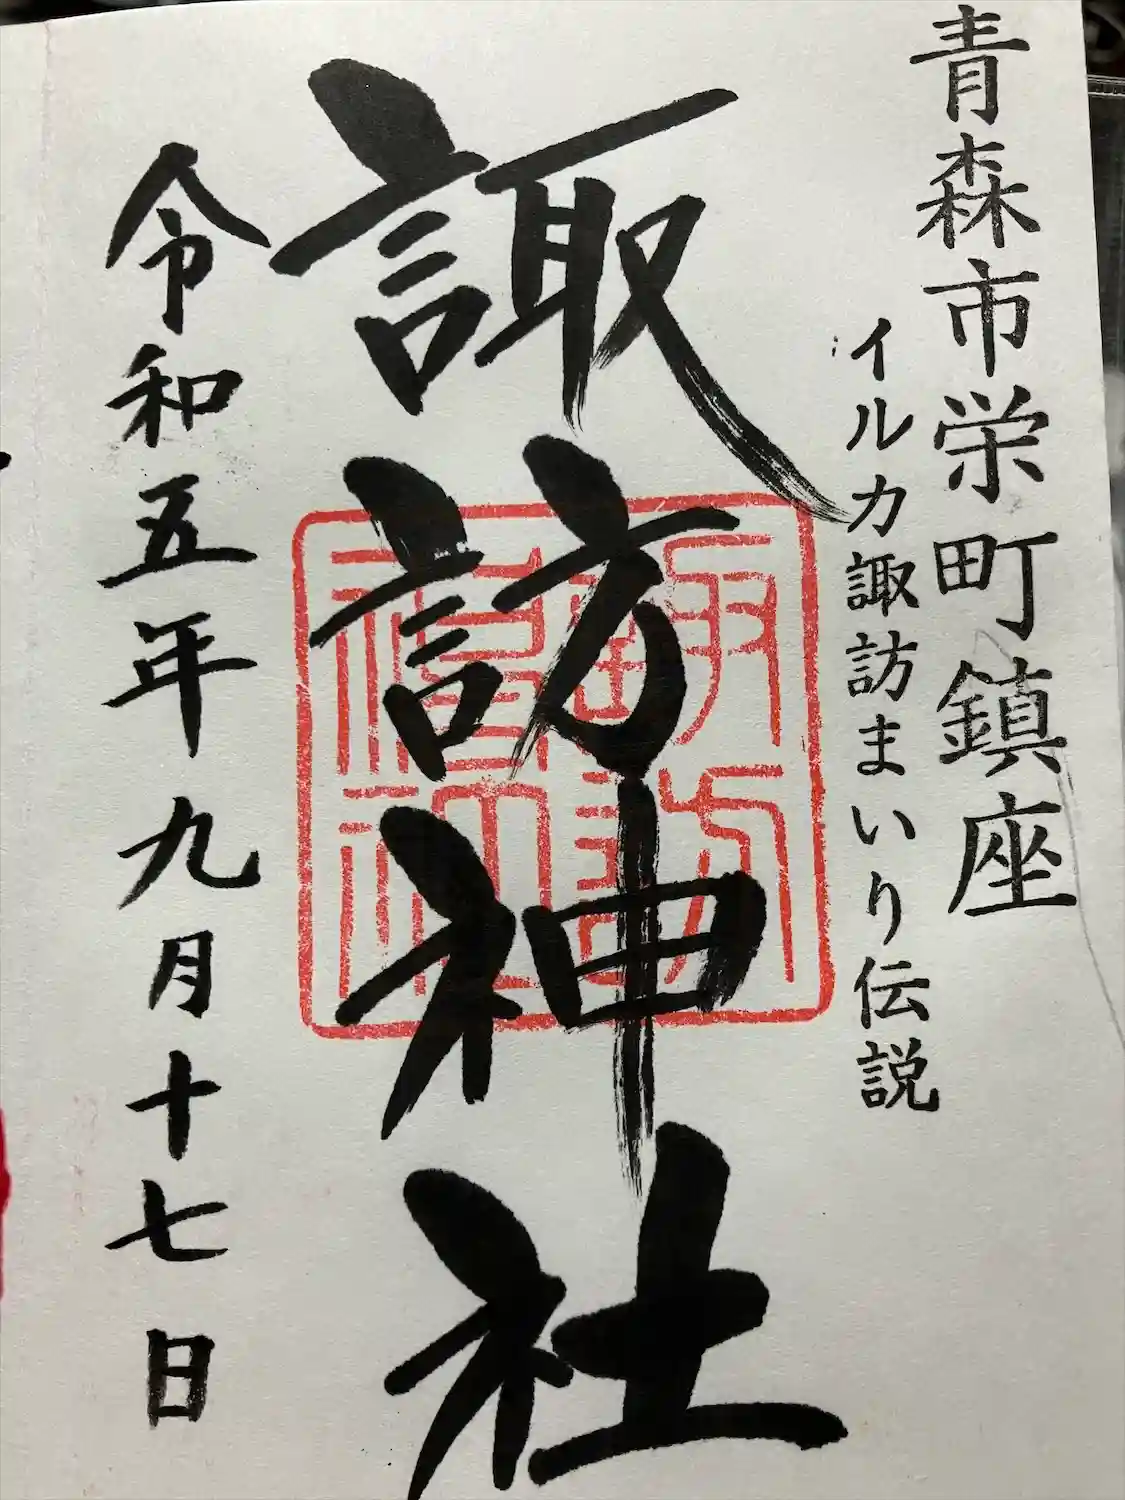 青森市栄町鎮座
イルカ諏訪まいり伝説
諏訪神社
令和五年九月十七日